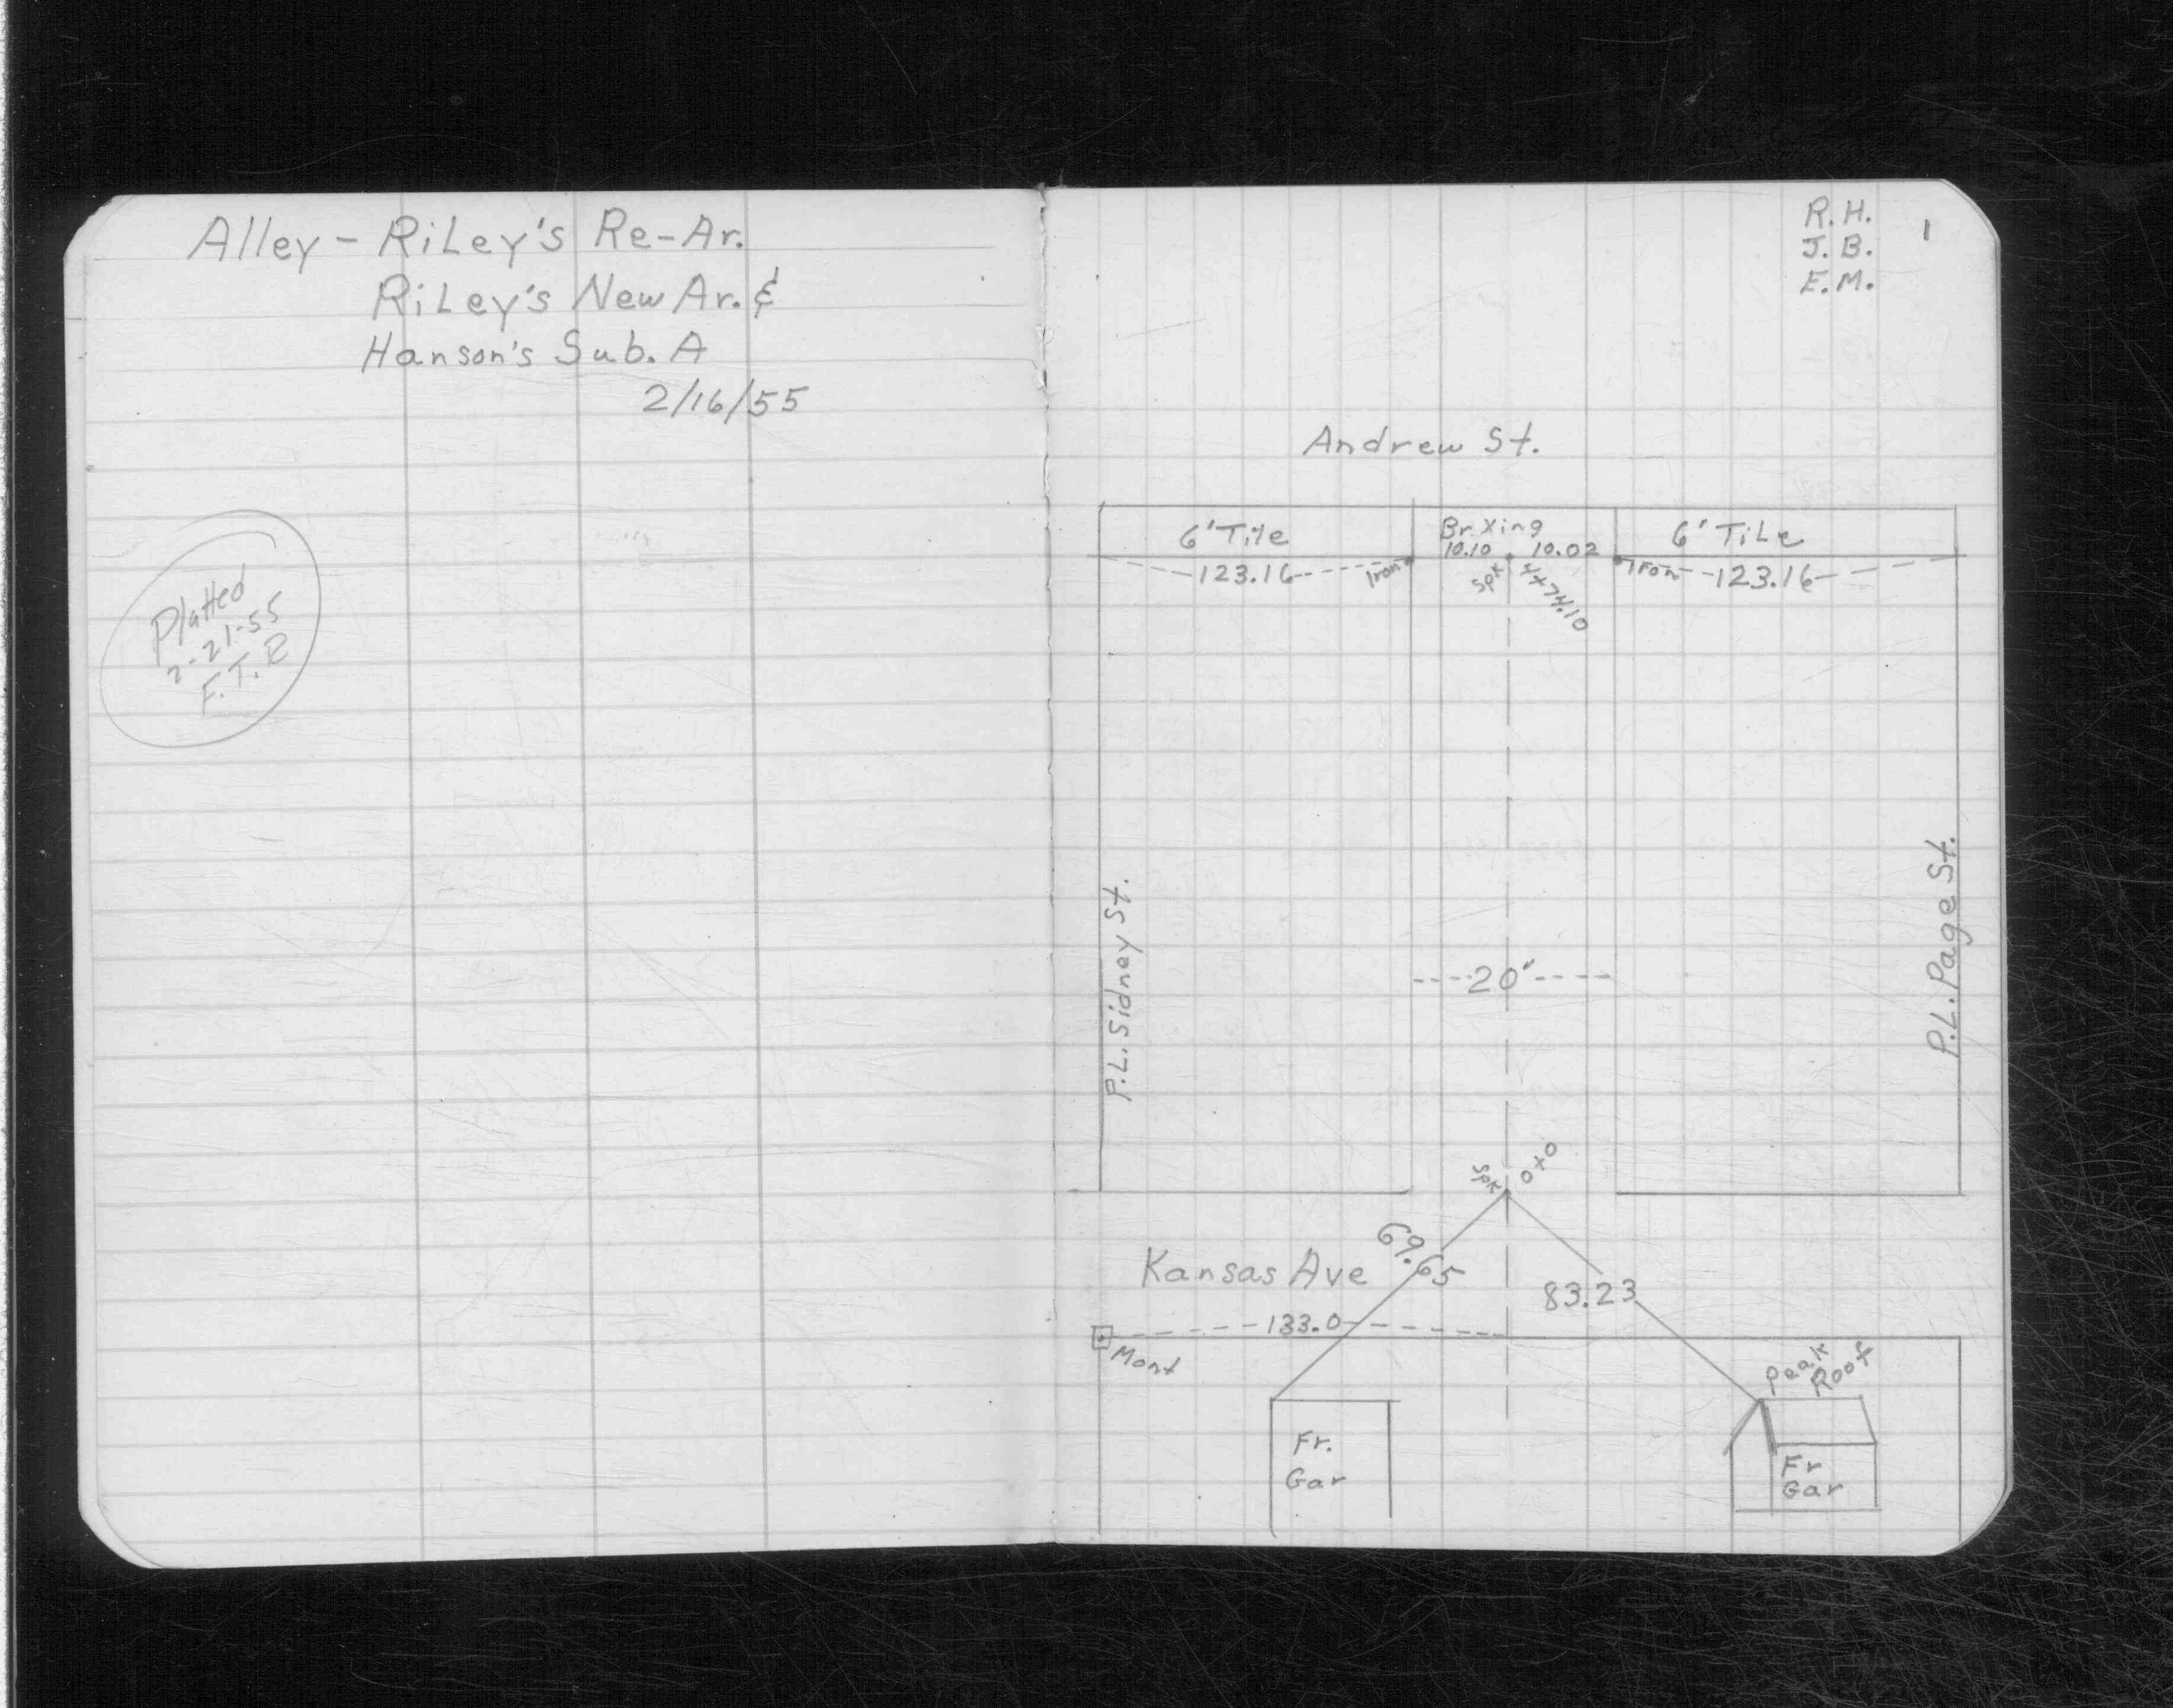 Alley - Riley's Re-Ar.
Riley's New Ar. &
Hanson's Sub. A
2/16/55
Platted
2-21-55
F.T.R
R.H.
J.B.
E.M.
1
Andrew St.
6' Tile
Br. Xing
6' Tile
10.10 10.02
123.16
Iron
Spk
4+74.10
Iron
123.16
P.L. Sidney St.
P.L. Page St.
20'
Spk
0+0
69.65
Kansas Ave
83.23
133.0
Mont
Peak
Roof
Fr.
Gar
Fr
Gar